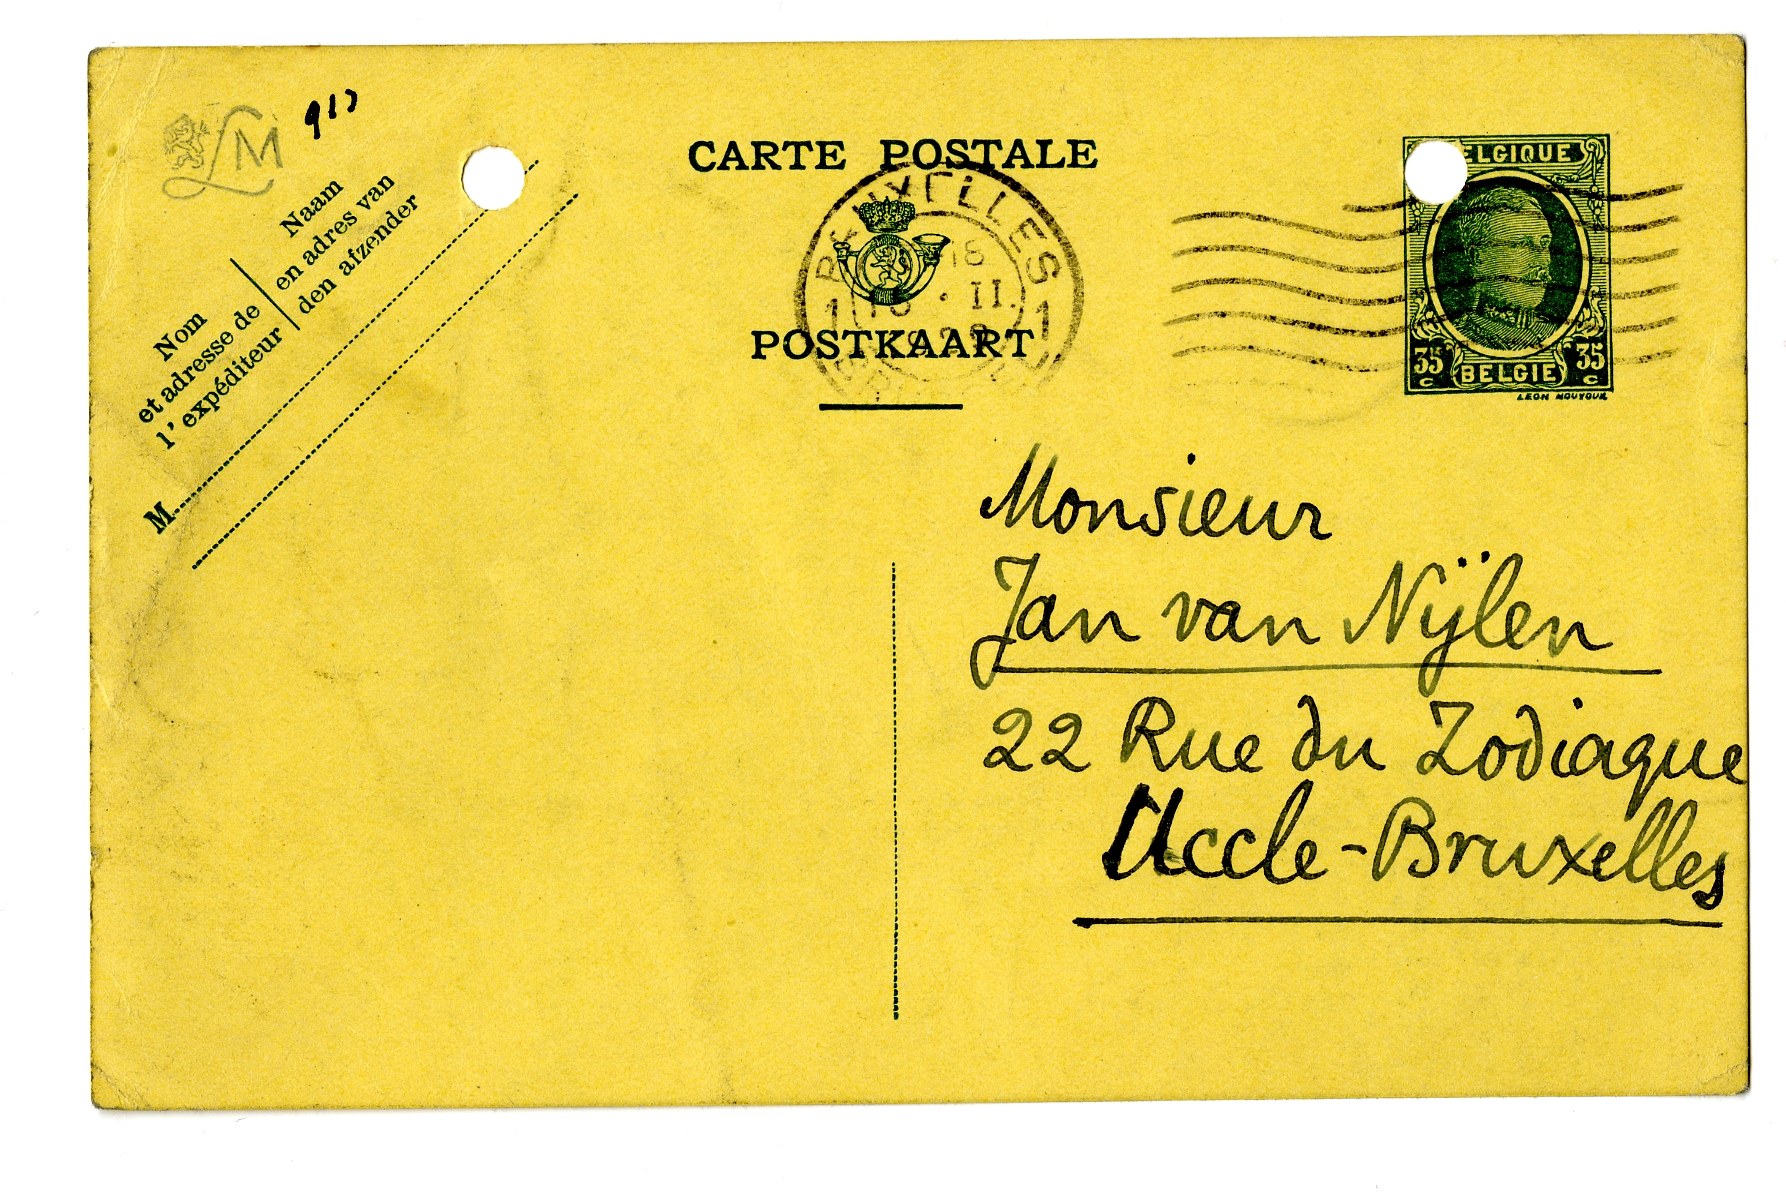 LM
CARTE POSTALE
POSTKAART
Naam
en adres van
den afzender
Nom
et adresse de
l'expéditeur
M
BRUXELLES
18
II.
1 1
BELGIQUE
35 c BELGIE 35 c
Monsieur
Jan van Nijlen
22 Rue du Zodiaque
Uccle-Bruxelles